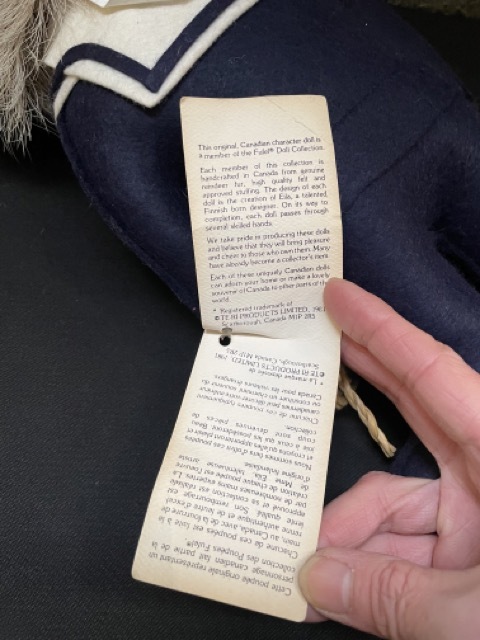 This original, Canadian character doll is
a member of the Fufel® Doll Collection.
Each member of this collection is
handcrafted in Canada from genuine
reindeer fur, high quality felt and
approved stuffing. The design of each
doll is the creation of Eila, a talented,
Finnish born designer. On its way to
completion, each doll passes through
several skilled hands.
We take pride in producing these dolls
and believe that they will bring pleasure
and cheer to those who own them. Many
have already become a collector's item.
Each of these uniquely Canadian dolls
can adorn your home or make a lovely
souvenir of Canada to other parts of the
world.
* Registered trademark of
©TE RI PRODUCTS LIMITED, 1981
Scarborough, Canada M1P 2R5
Cette poupée originale représentant un
personnage canadien fait partie de la
collection des Poupées Fufel*
Chacune de ces poupées est faite à la
main, au Canada, avec de la fourrure de
renne authentique, du feutre d'excel
lente qualité. Son rembourrage est
approuvé et sa confection nécessite
de nombreuses mains expertes. La
création de chaque poupée est l'oeuvre
de Mme Eila, talentueuse artiste
d'origine finlandaise.
Nous sommes fiers d'offrir ces poupées
et croyons qu'elles apporteront plaisir et
joie à ceux qui les posséderont. Beau
coup sont devenues des pièces de
collection.
Chacune de ces poupées typiquement
canadiennes peut décorer votre intérieur
ou constituer un charmant souvenir du
Canada pour les visiteurs étrangers.
* La marque déposée de
©TE RI PRODUCTS LIMITED, 1981
Scarborough, Canada M1P 2R5